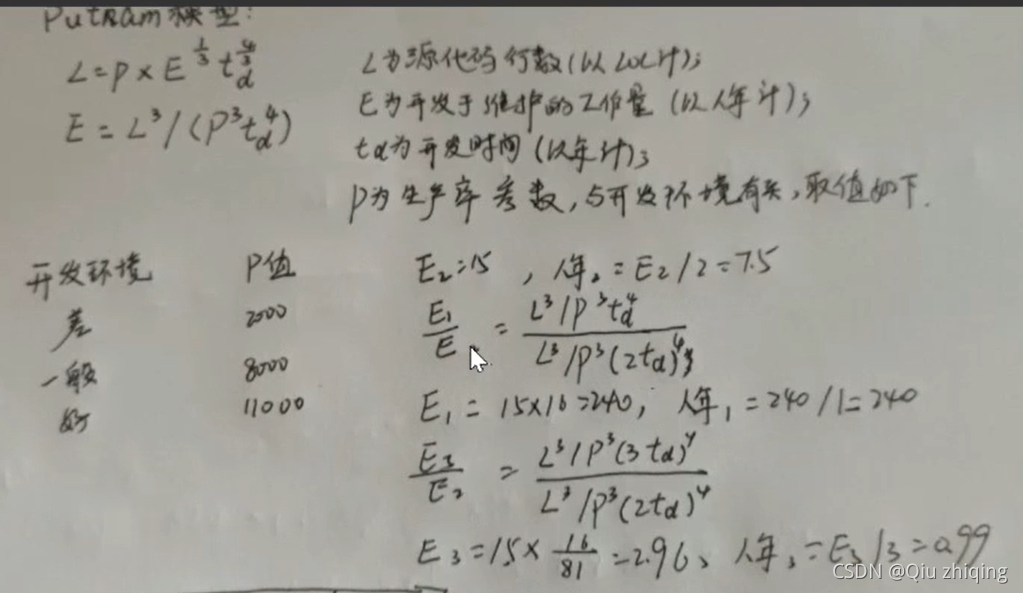 Putnam模型:
L=P×E^{1/3} t_d^{4/3}
L为源代码行数(以LOC计);
E=L³/(P³t_d⁴)
E为开发于维护的工作量(以人年计);
td为开发时间(以年计);
P为生产率参数,与开发环境有关,取值如下.
开发环境 P值
差 2000
一般 8000
好 11000
E₂=15 ,人年₂=E₂/2=7.5
E₁/E = L³/P³t_d⁴ / L³/P³(2td)⁴
E₁=15×16=240, 人年₁=240/1=240
E₃/E₂ = L³/P³(3td)⁴ / L³/P³(2td)⁴
E₃=15×16/81=2.96、人年₃=E₃/3=0.99
CSDN @Qiu zhiqing